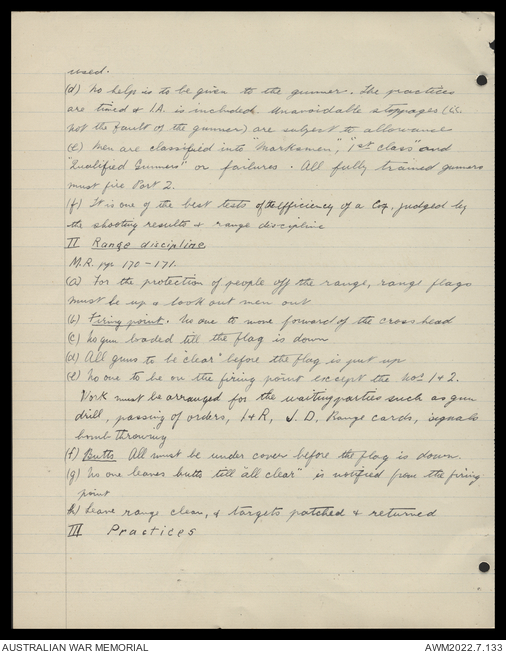 used.
(d) No help is to be given to the gunner. The practices
are timed & I.A. is included. Unavoidable stoppages (i.e.
not the fault of the gunner) are subject to allowance
(e) Men are classified into "Marksmen," "1st class" and
"Qualified Gunners" or failures. All fully trained gunners
must fire Part 2.
(f) It is one of the best tests of the efficiency of a Coy, judged by
the shooting results & range discipline
II Range discipline
M.R. pp 170-171.
(a) For the protection of people off the range, range flags
must be up & look out men out
(b) Firing point. No one to move forward of the crosshead
(c) No gun loaded till the flag is down
(d) All guns to be "clear" before the flag is put up
(e) No one to be on the firing point except the Nos 1 & 2.
Work must be arranged for the waiting parties such as gun
drill, passing of orders, I & R, J.D. Range cards, signals
bomb throwing
(f) Butts All must be under cover before the flag is down.
(g) No one leaves butts till "all clear" is notified from the firing
point
(h) Leave range clean, & targets patched & returned
III Practices
AUSTRALIAN WAR MEMORIAL
AWM2022.7.133